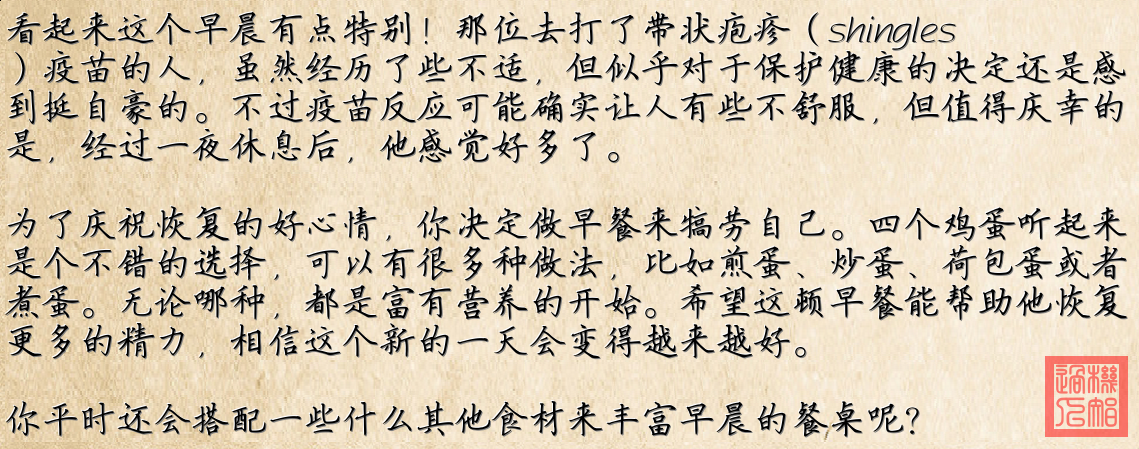 看起来这个早晨有点特别！那位去打了带状疱疹（shingles
）疫苗的人，虽然经历了些不适，但似乎对于保护健康的决定还是感
到挺自豪的。不过疫苗反应可能确实让人有些不舒服，但值得庆幸的
是，经过一夜休息后，他感觉好多了。
为了庆祝恢复的好心情，你决定做早餐来犒劳自己。四个鸡蛋听起来
是个不错的选择，可以有很多种做法，比如煎蛋、炒蛋、荷包蛋或者
煮蛋。无论哪种，都是富有营养的开始。希望这顿早餐能帮助他恢复
更多的精力，相信这个新的一天会变得越来越好。
你平时还会搭配一些什么其他食材来丰富早晨的餐桌呢？